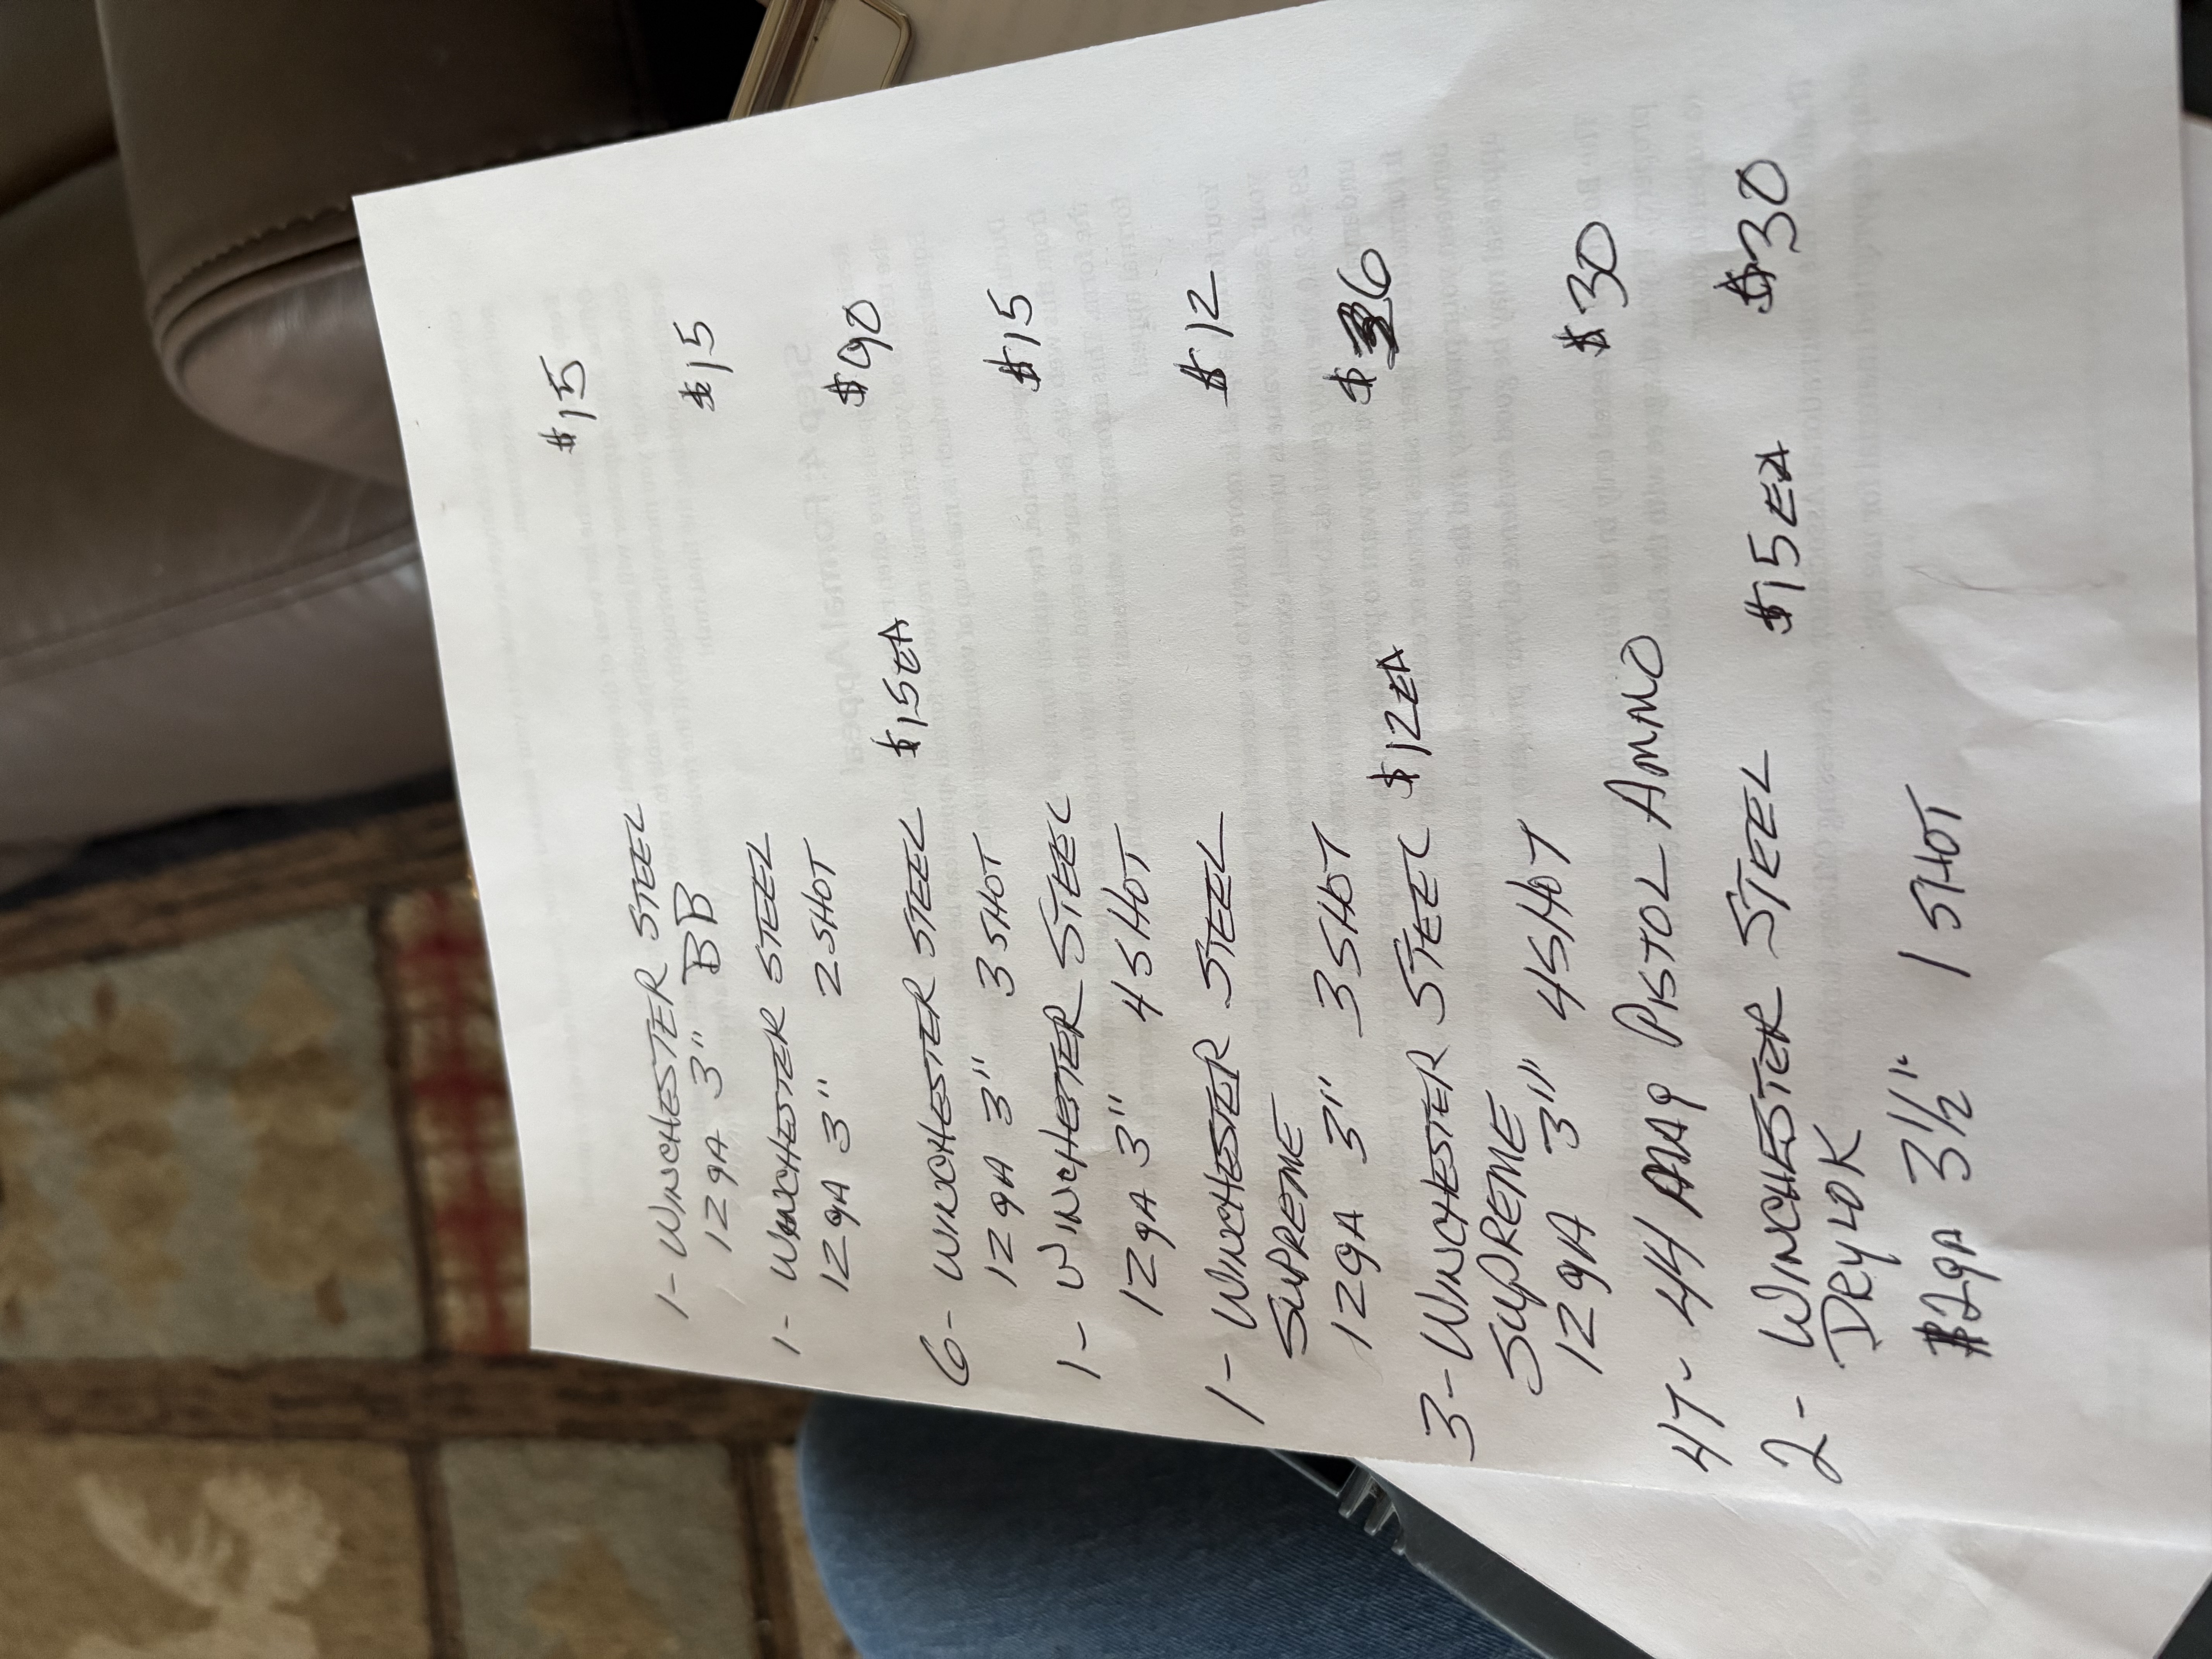 1- WINCHESTER STEEL $15
12gA 3" BB
1- WINCHESTER STEEL $15
12gA 3" 2 SHOT
6- WINCHESTER STEEL $15EA $90
12gA 3" 3 SHOT
1- WINCHESTER STEEL $15
12gA 3" 4 SHOT
1- WINCHESTER STEEL $12
SUPREME
12gA 3" 3 SHOT
3- WINCHESTER STEEL $12EA $36
SUPREME
12gA 3" 4 SHOT
47- 44 MAg PISTOL AMMO $30
2- WINCHESTER STEEL $15EA $30
DRYLOK
12gA 3 1/2" 1 SHOT